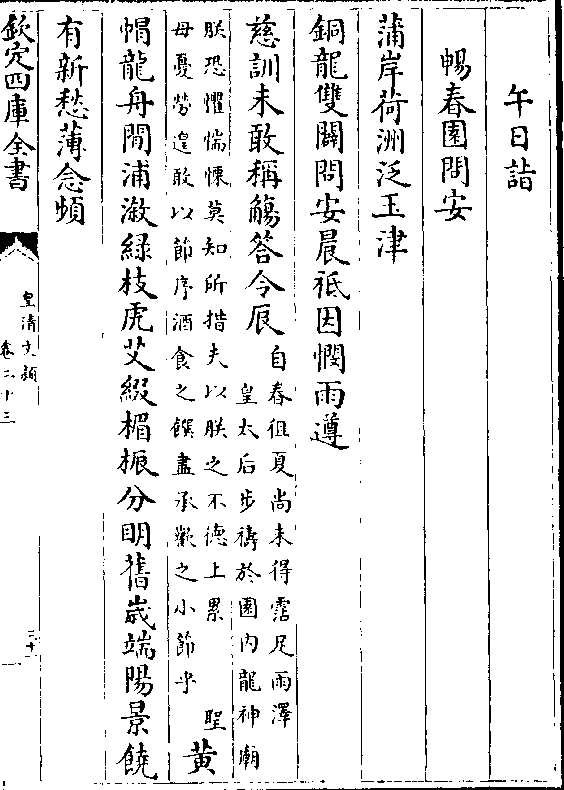 午日詣
暢春園問安
蒲岸荷洲泛玉津
銅龍雙闢問安晨祗因憫雨遵
慈訓未敢稱觴答令辰
自春徂夏尚未得霑足雨澤
皇太后步禱於園内龍神廟
朕恐懼惴慄莫知所措夫以朕之不德上累 聖
母憂勞遑敢以節序酒食之饌盡承歡之小節乎
黄
帽龍舟閒浦漵綠枝虎艾綴楣桭分明舊歲端陽景饒
有新愁薄念頻
欽定四庫全書
皇清文穎
卷二十三